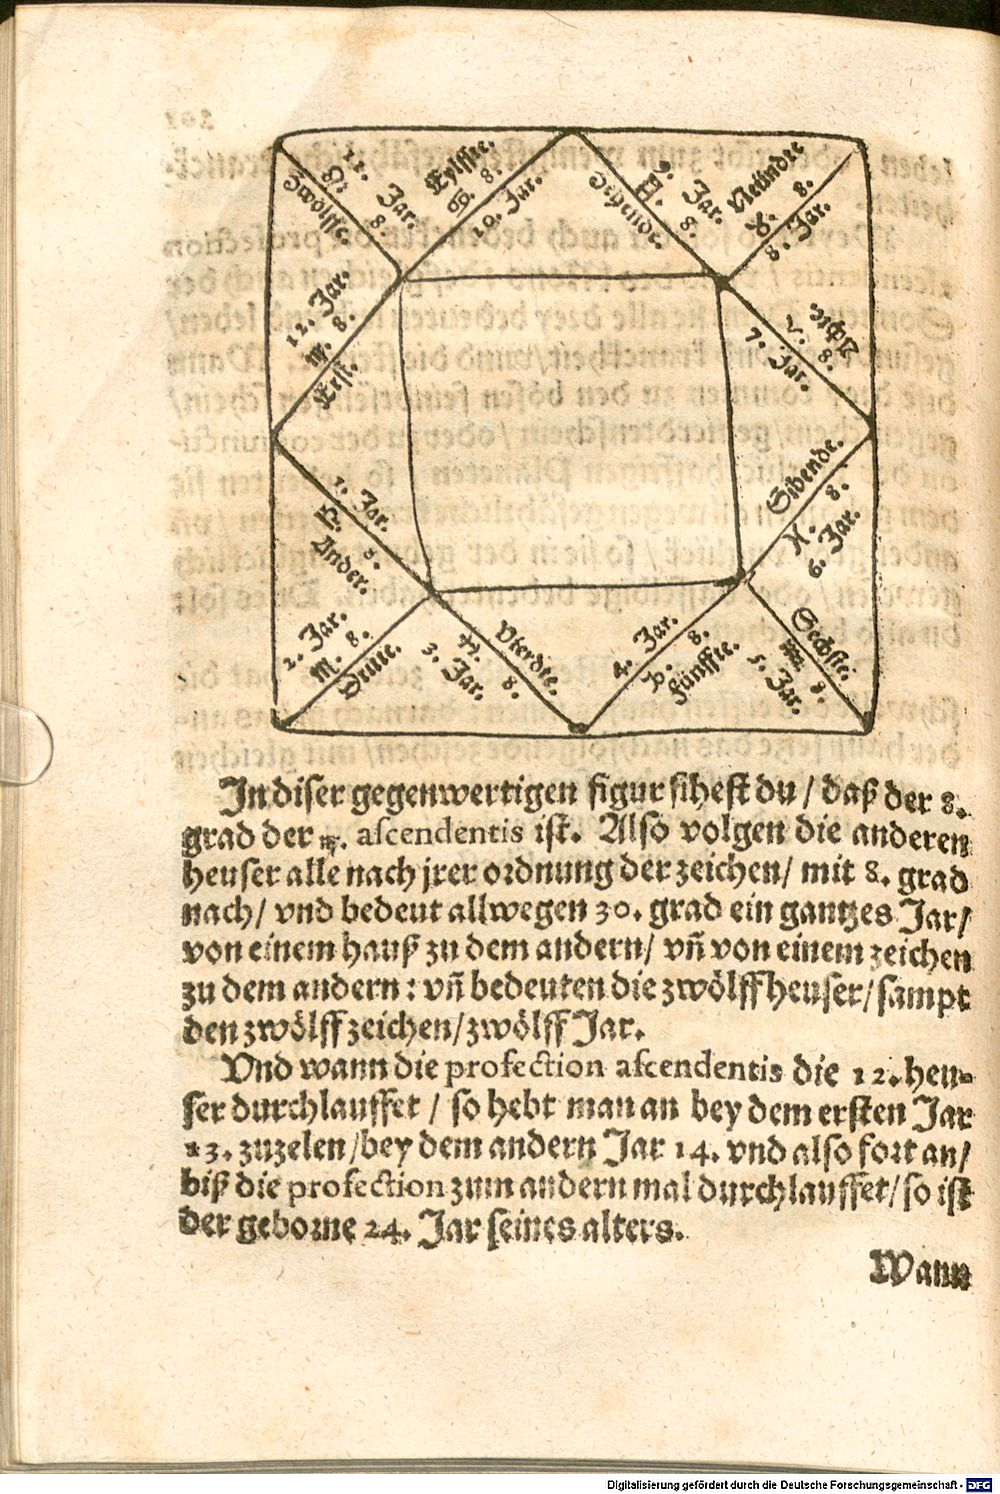 11. Jar.
♌. 8.
Zwölffte.
Eylffte.
♋. 8.
10. Jar.
9. Jar.
♊. 8.
Zehende.
Neundte
♉. 8.
8. Jar.
12. Jar.
♍. 8.
Erst.
Achte
♈. 8.
7. Jar.
1. Jar.
♎. 8.
Ander.
Sibende.
♓. 8.
6. Jar.
2. Jar.
♏. 8.
Dritte.
Vierdte.
♐. 8.
3. Jar.
4. Jar.
♑. 8.
Fünffte.
Sechste.
♒. 8.
5. Jar.
In diser gegenwertigen figur sihest du / daß der 8.
grad der ♍. ascendentis ist. Also volgen die anderen
heuser alle nach jrer ordnung der zeichen/ mit 8. grad
nach/ vnd bedeut allwegen 30. grad ein gantzes Jar/
von einem hauß zu dem andern/ vñ von einem zeichen
zu dem andern : vñ bedeuten die zwölff heuser/ sampt
den zwölff zeichen/ zwölff Jar.
Vnd wann die profection ascendentis die 12. heu-
ser durchlauffet / so hebt man an bey dem ersten Jar
13. zuzelen /bey dem andern Jar 14. vnd also fort an/
biß die profection zum andern mal durchlauffet/ so ist
der geborne 24. Jar seines alters.
Wann
Digitalisierung gefördert durch die Deutsche Forschungsgemeinschaft - DFG